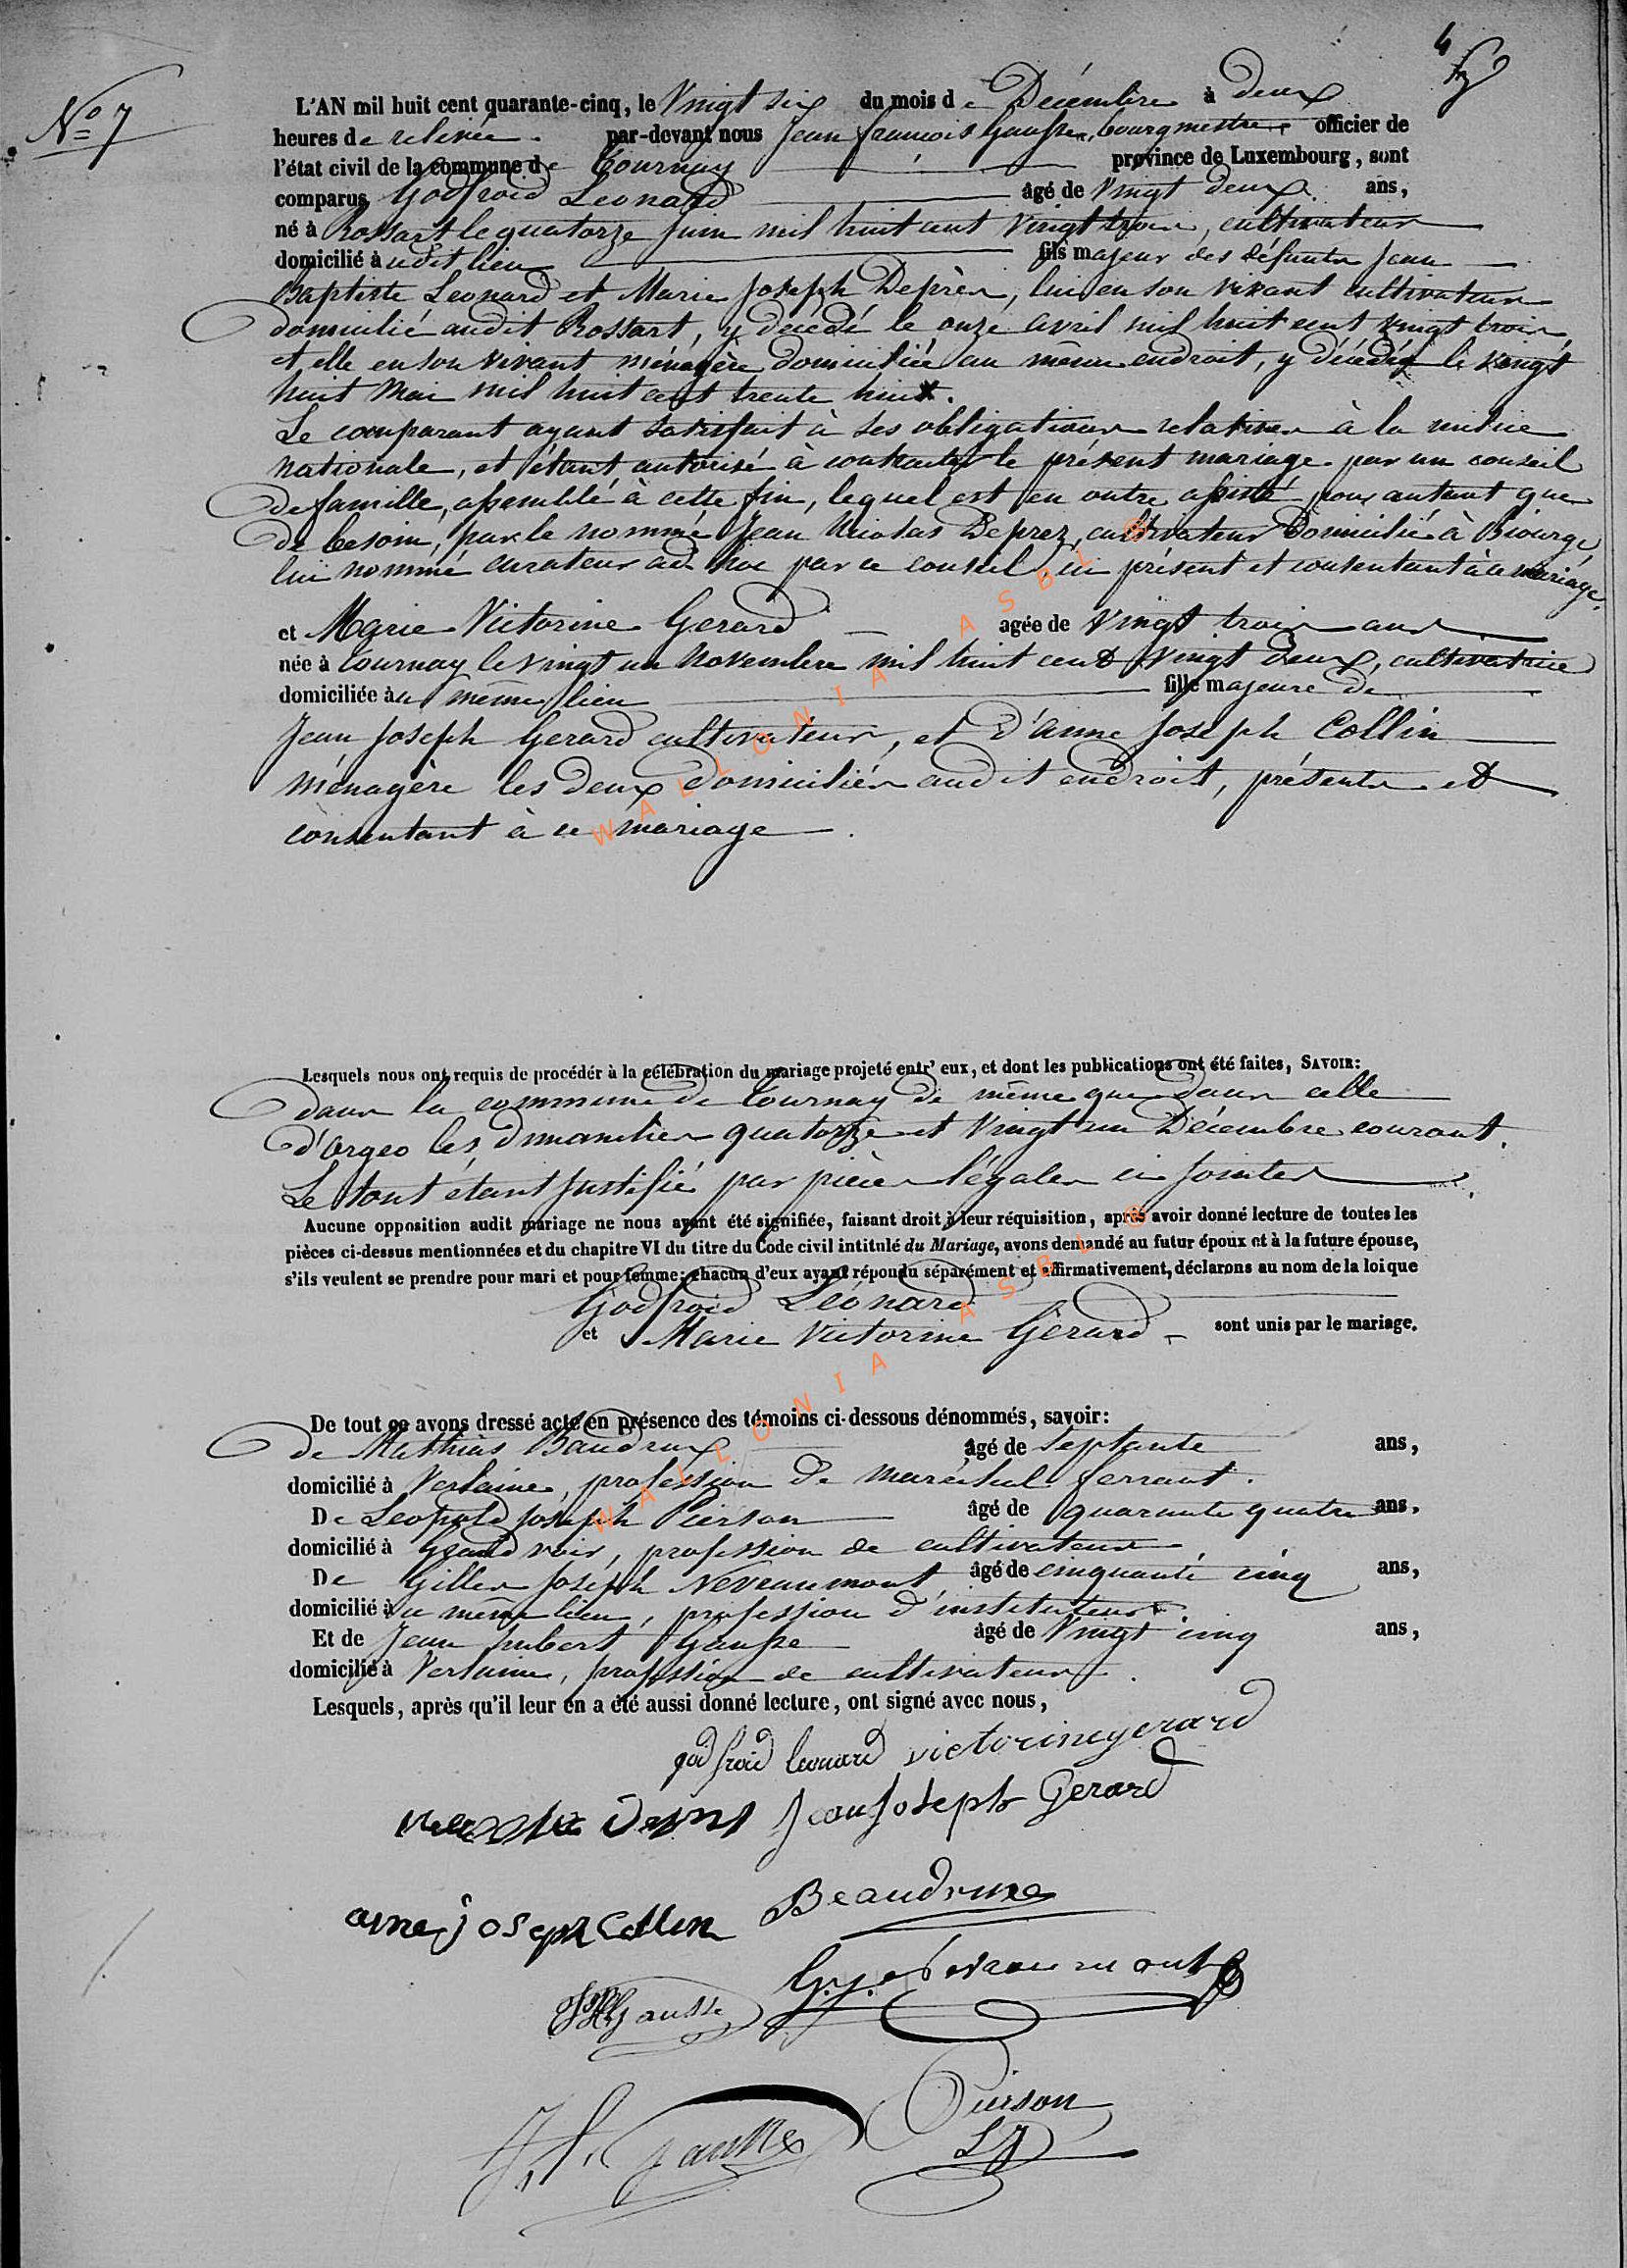 4
No 7
L'AN mil huit cent quarante-cinq, le Vingt six du mois de Décembre à deux
heures de relevée par-devant nous Jean françois Gausse, bourgmestre officier de
l'état civil de la commune de Tournay province de Luxembourg, sont
comparus Godfroid Leonard âgé de Vingt deux ans,
né à Rossart le quatorze juin mil huit cent Vingt trois, cultivateur
domicilié audit lieu fils majeur des défunts Jean
Baptiste Leonard et Marie Joseph Deprèz, lui en son vivant cultivateur
domicilié audit Rossart, y décédé le onze avril mil huit cent vingt trois,
et elle en son vivant ménagère domiciliée au même endroit, y décédée le vingt
huit Mai mil huit cent trente huit.
Le comparant ayant satisfait à ses obligations relatives à la milice
nationale, et étant autorisé à contracter le présent mariage par un conseil
de famille, assemblé à cette fin, lequel est en outre assisté pour autant que
de besoin, par le nommé Jean Nicolas Deprez, cultivateur domicilié à Biourge
lui nommé curateur ad hoc par ce conseil, ici présent et consentant à ce mariage.
et Marie Victorine Gerard agée de Vingt trois ans
née à Tournay le vingt un Novembre mil huit cent vingt deux, cultivatrice
domiciliée au même lieu fille majeure de
Jean Joseph Gerard cultivateur, et d'anne Joseph Collin
ménagère les deux domiciliés audit endroit, présents et
consentant à ce mariage.
Lesquels nous ont requis de procédér à la célébration du mariage projeté entr' eux, et dont les publications ont été faites, SAVOIR:
dans la commune de Tournay de même que dans celle
d'Orgeo les dimanches quatorze et Vingt un Décembre courant.
Le tout étant justifié par pièces légales ci jointes
Aucune opposition audit mariage ne nous ayant été signifiée, faisant droit à leur réquisition, après avoir donné lecture de toutes les
pièces ci-dessus mentionnées et du chapitre VI du titre du Code civil intitulé du Mariage, avons demandé au futur époux et à la future épouse,
s'ils veulent se prendre pour mari et pour femme: chacun d'eux ayant répondu séparément et affirmativement, déclarons au nom de la loi que
Godfroid Léonard
et Marie Victorine Gérard sont unis par le mariage.
De tout ce avons dressé acte en présence des témoins ci-dessous dénommés, savoir:
de Mathias Baudrux âgé de Septante ans,
domicilié à Verlaine, profession de maréchal ferrant.
De Leopold Joseph Pierson âgé de quarante quatre ans,
domicilié à Grand voir, profession de cultivateur
De Gilles Joseph Nevraumont âgé de cinquante cinq ans,
domicilié à ce même lieu, profession d'instituteur.
Et de Jean hubert Gausse âgé de Vingt cinq ans,
domicilié à Verlaine, profession de cultivateur.
Lesquels, après qu'il leur en a été aussi donné lecture, ont signé avec nous,
godfroid leonard victorine gerard
Jean Joseph Gerard
anne joseph Collin Beaudrux
G. J. Nevraumont
JH Gausse
Pierson
J. f. Gausse LJ
WALLONIA ASBL ©
WALLONIA ASBL ©